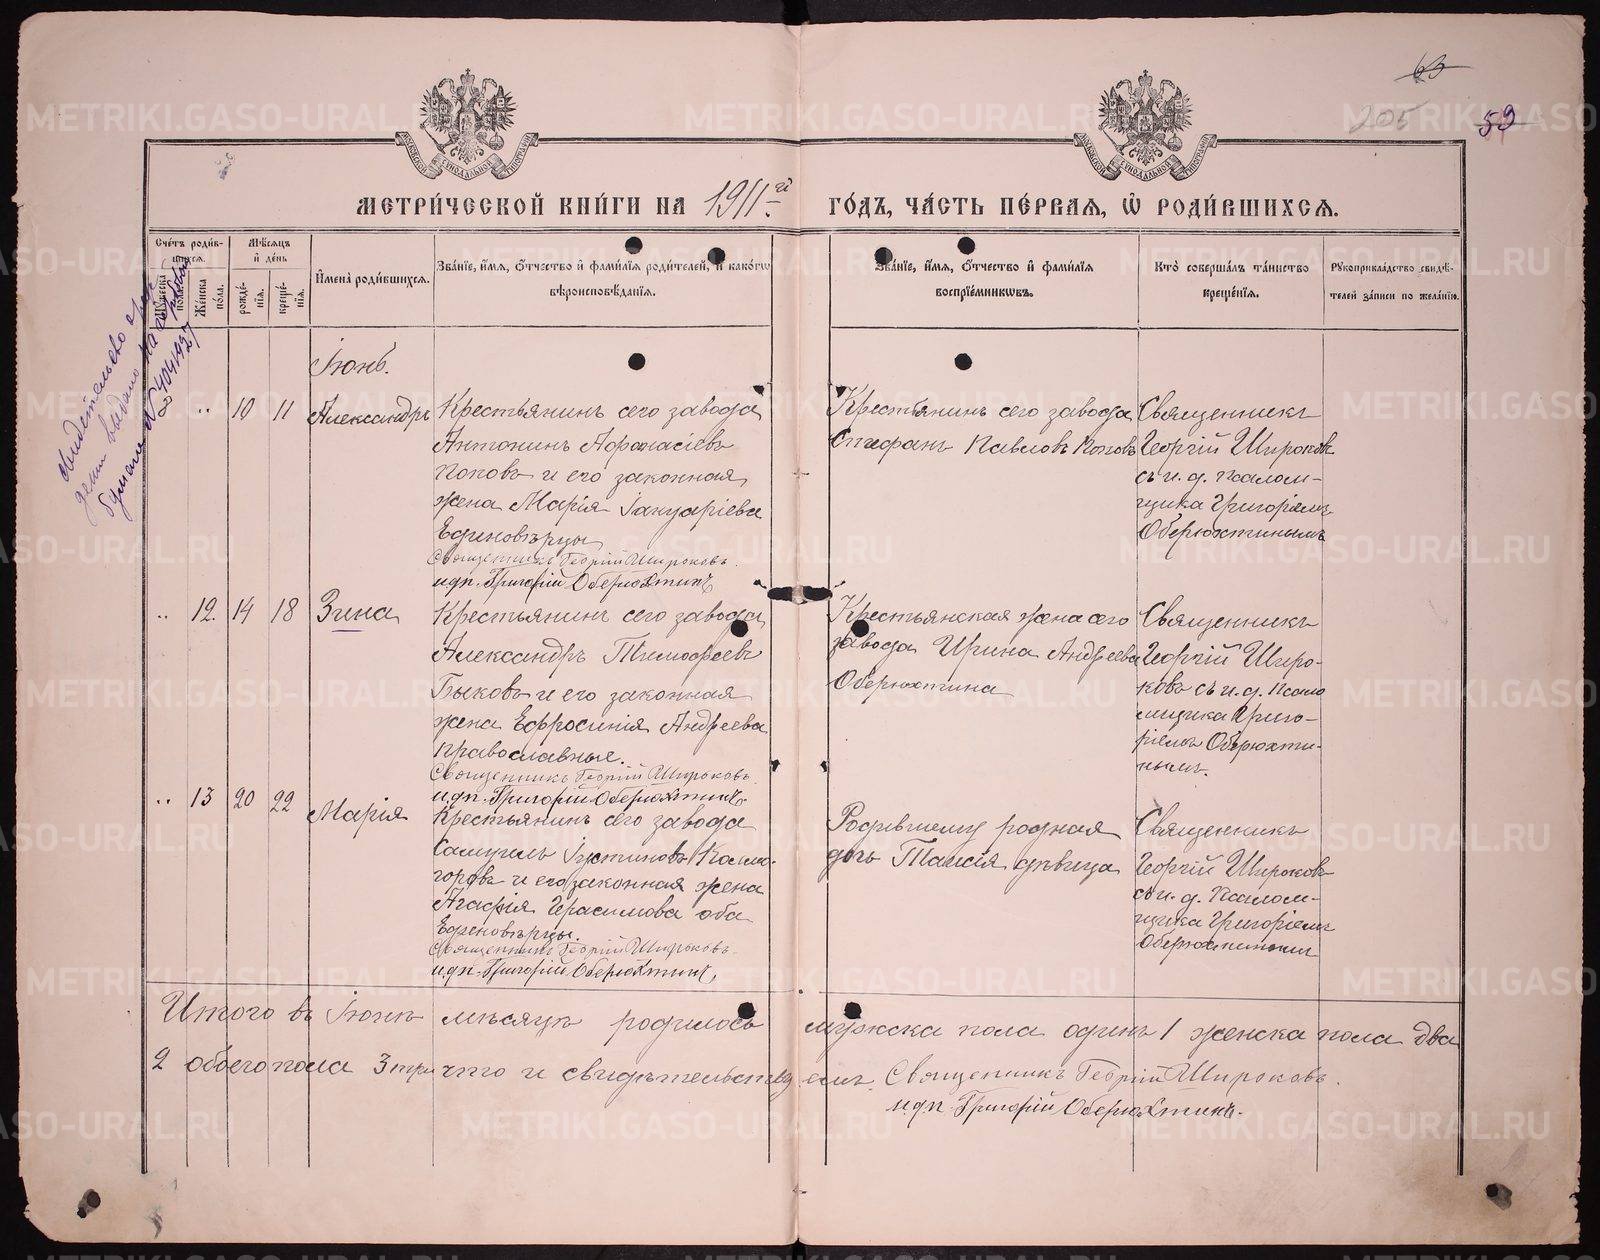 63
205
59
МЕТРИ́ЧЕСКОЙ КНИ́ГИ НА 1911й ГО́ДЪ, ЧА́СТЬ ПЕ́РВАЯ, Ѡ РОДИ́ВШИХСЯ.
Сче́тъ роди́вшихся.
Му́жеска по́ла.
Же́нска по́ла.
Мѣ́сяцъ и де́нь
рожде́нія.
креще́нія.
Имена̀ роди́вшихся.
Зва́ніе, и́мя, о́тчество и фами́лія роди́телей, и како́гѡ вѣроисповѣ́данія.
Зва́ніе, и́мя, о́тчество и фами́лія воспріе́мникѡвъ.
Кто̀ соверша́лъ та́инство креще́нія.
Рукоприкла́дство свидѣ́телей за́писи по жела́нію.
Свидѣтельство
выдано на
№ 404 1927
Іюнь.
8 „ 10 11 Александръ
Крестьянинъ сего завода
Антонинъ Афонасіевъ
Поповъ и его законная
жена Марія Іануаріева
Единовѣрцы
Священникъ Георгій Широковъ.
и.д.п. Григорій Оберюхтинъ
Крестьянинъ сего завода
Стефанъ Павловъ Поповъ
Священникъ
Георгій Широковъ
съ и. д. псалом-
щика Григоріемъ
Оберюхтинымъ
„ 12. 14 18 Зина
Крестьянинъ сего завода
Александръ Тимофеевъ
Быковъ и его законная
жена Ефросинія Андреева
православные.
Священникъ Георгій Широковъ.
и.д.п. Григорій Оберюхтинъ.
Крестьянская жена сего
завода Ирина Андреева
Оберюхтина
Священникъ
Георгій Широ-
ковъ съ и. д. псало
мщика Григо-
ріемъ Оберюхти-
нымъ.
„ 13 20 22 Марія
Крестьянинъ сего завода
Самуилъ Іустиновъ Колмо-
горовъ и его законная жена
Агафія Герасимова оба
Единовѣрцы.
Священникъ Георгій Широковъ.
и.д.п. Григорій Оберюхтинъ,
Родившему родная
дочь Таисія дѣвица
Священникъ
Георгій Широковъ
съ и. д. псалом-
щика Григоріемъ
Оберюхтинымъ
Итого въ Іюнѣ мѣсяцѣ родилось мужска пола одинъ 1 женска пола два
2 обоего пола 3 три что и свидѣтельствуемъ. Священникъ Георгій Широковъ.
и.д.п. Григорій Оберюхтинъ.